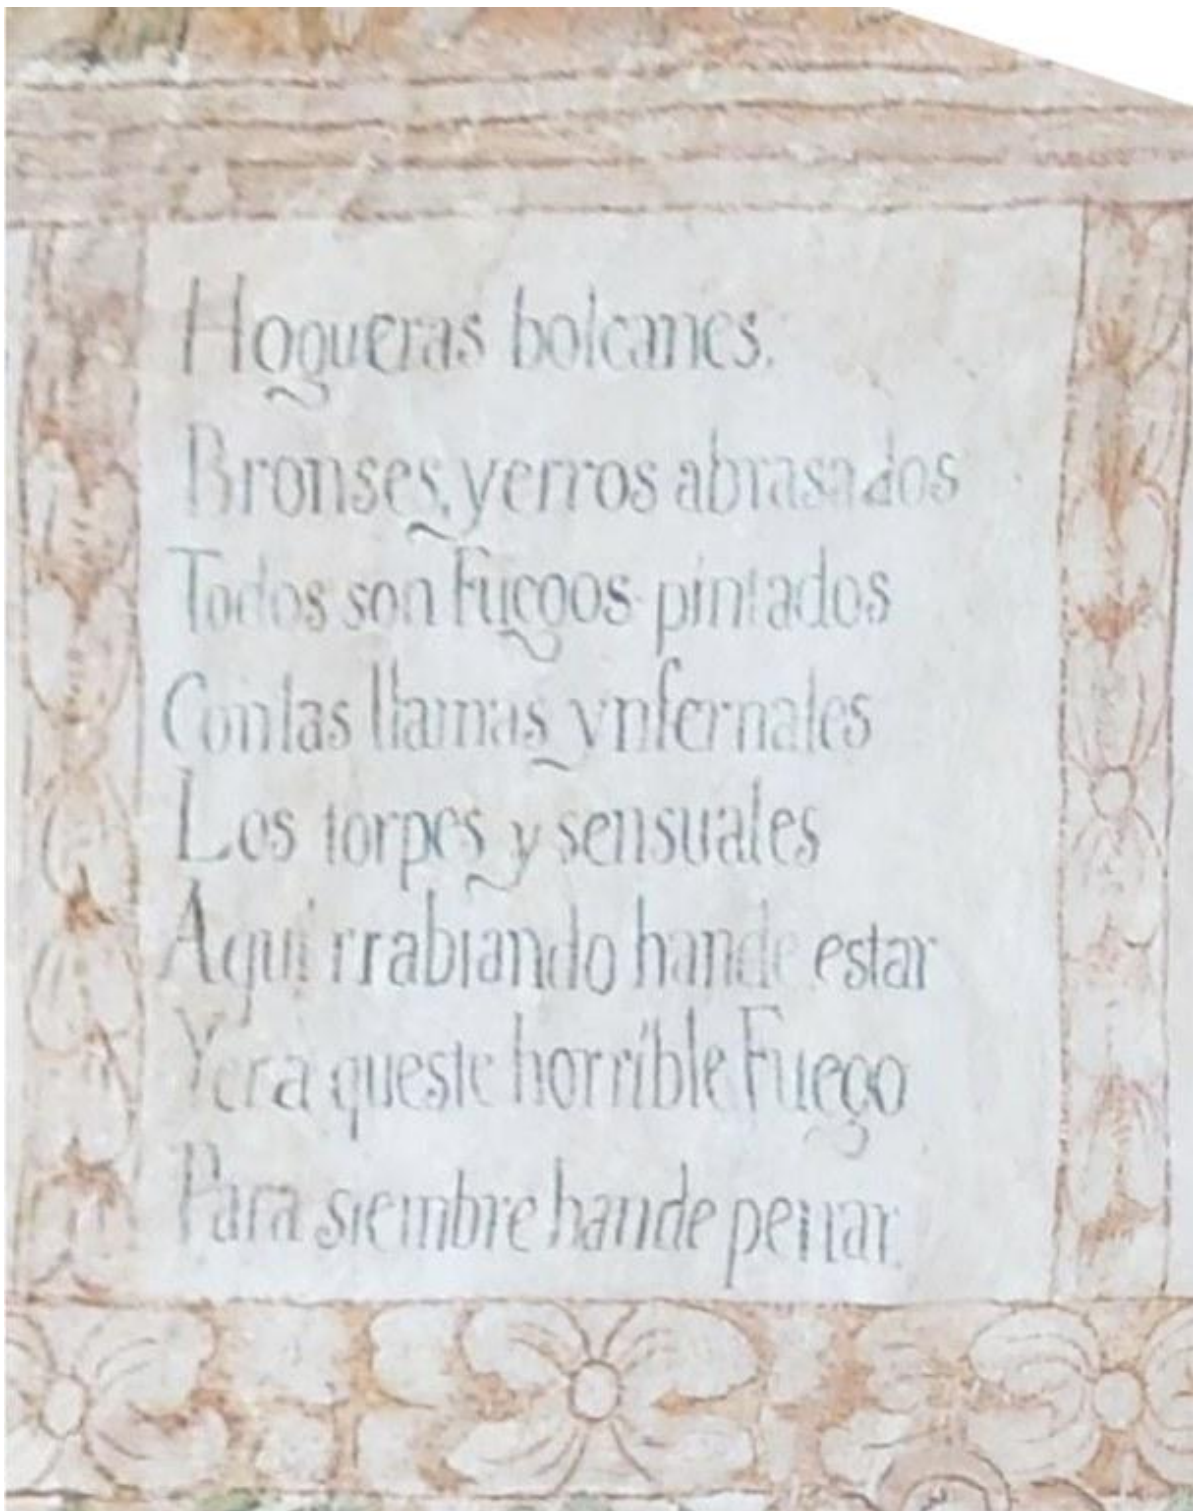 Hogueras bolcanes.
Bronses, yerros abrasados
Todos son Fuegos pintados
Conlas llamas ynfernales
Los torpes y sensuales
Aqui rrabiando hande estar
Yera queste horrible Fuego
Para siembre hande penar.